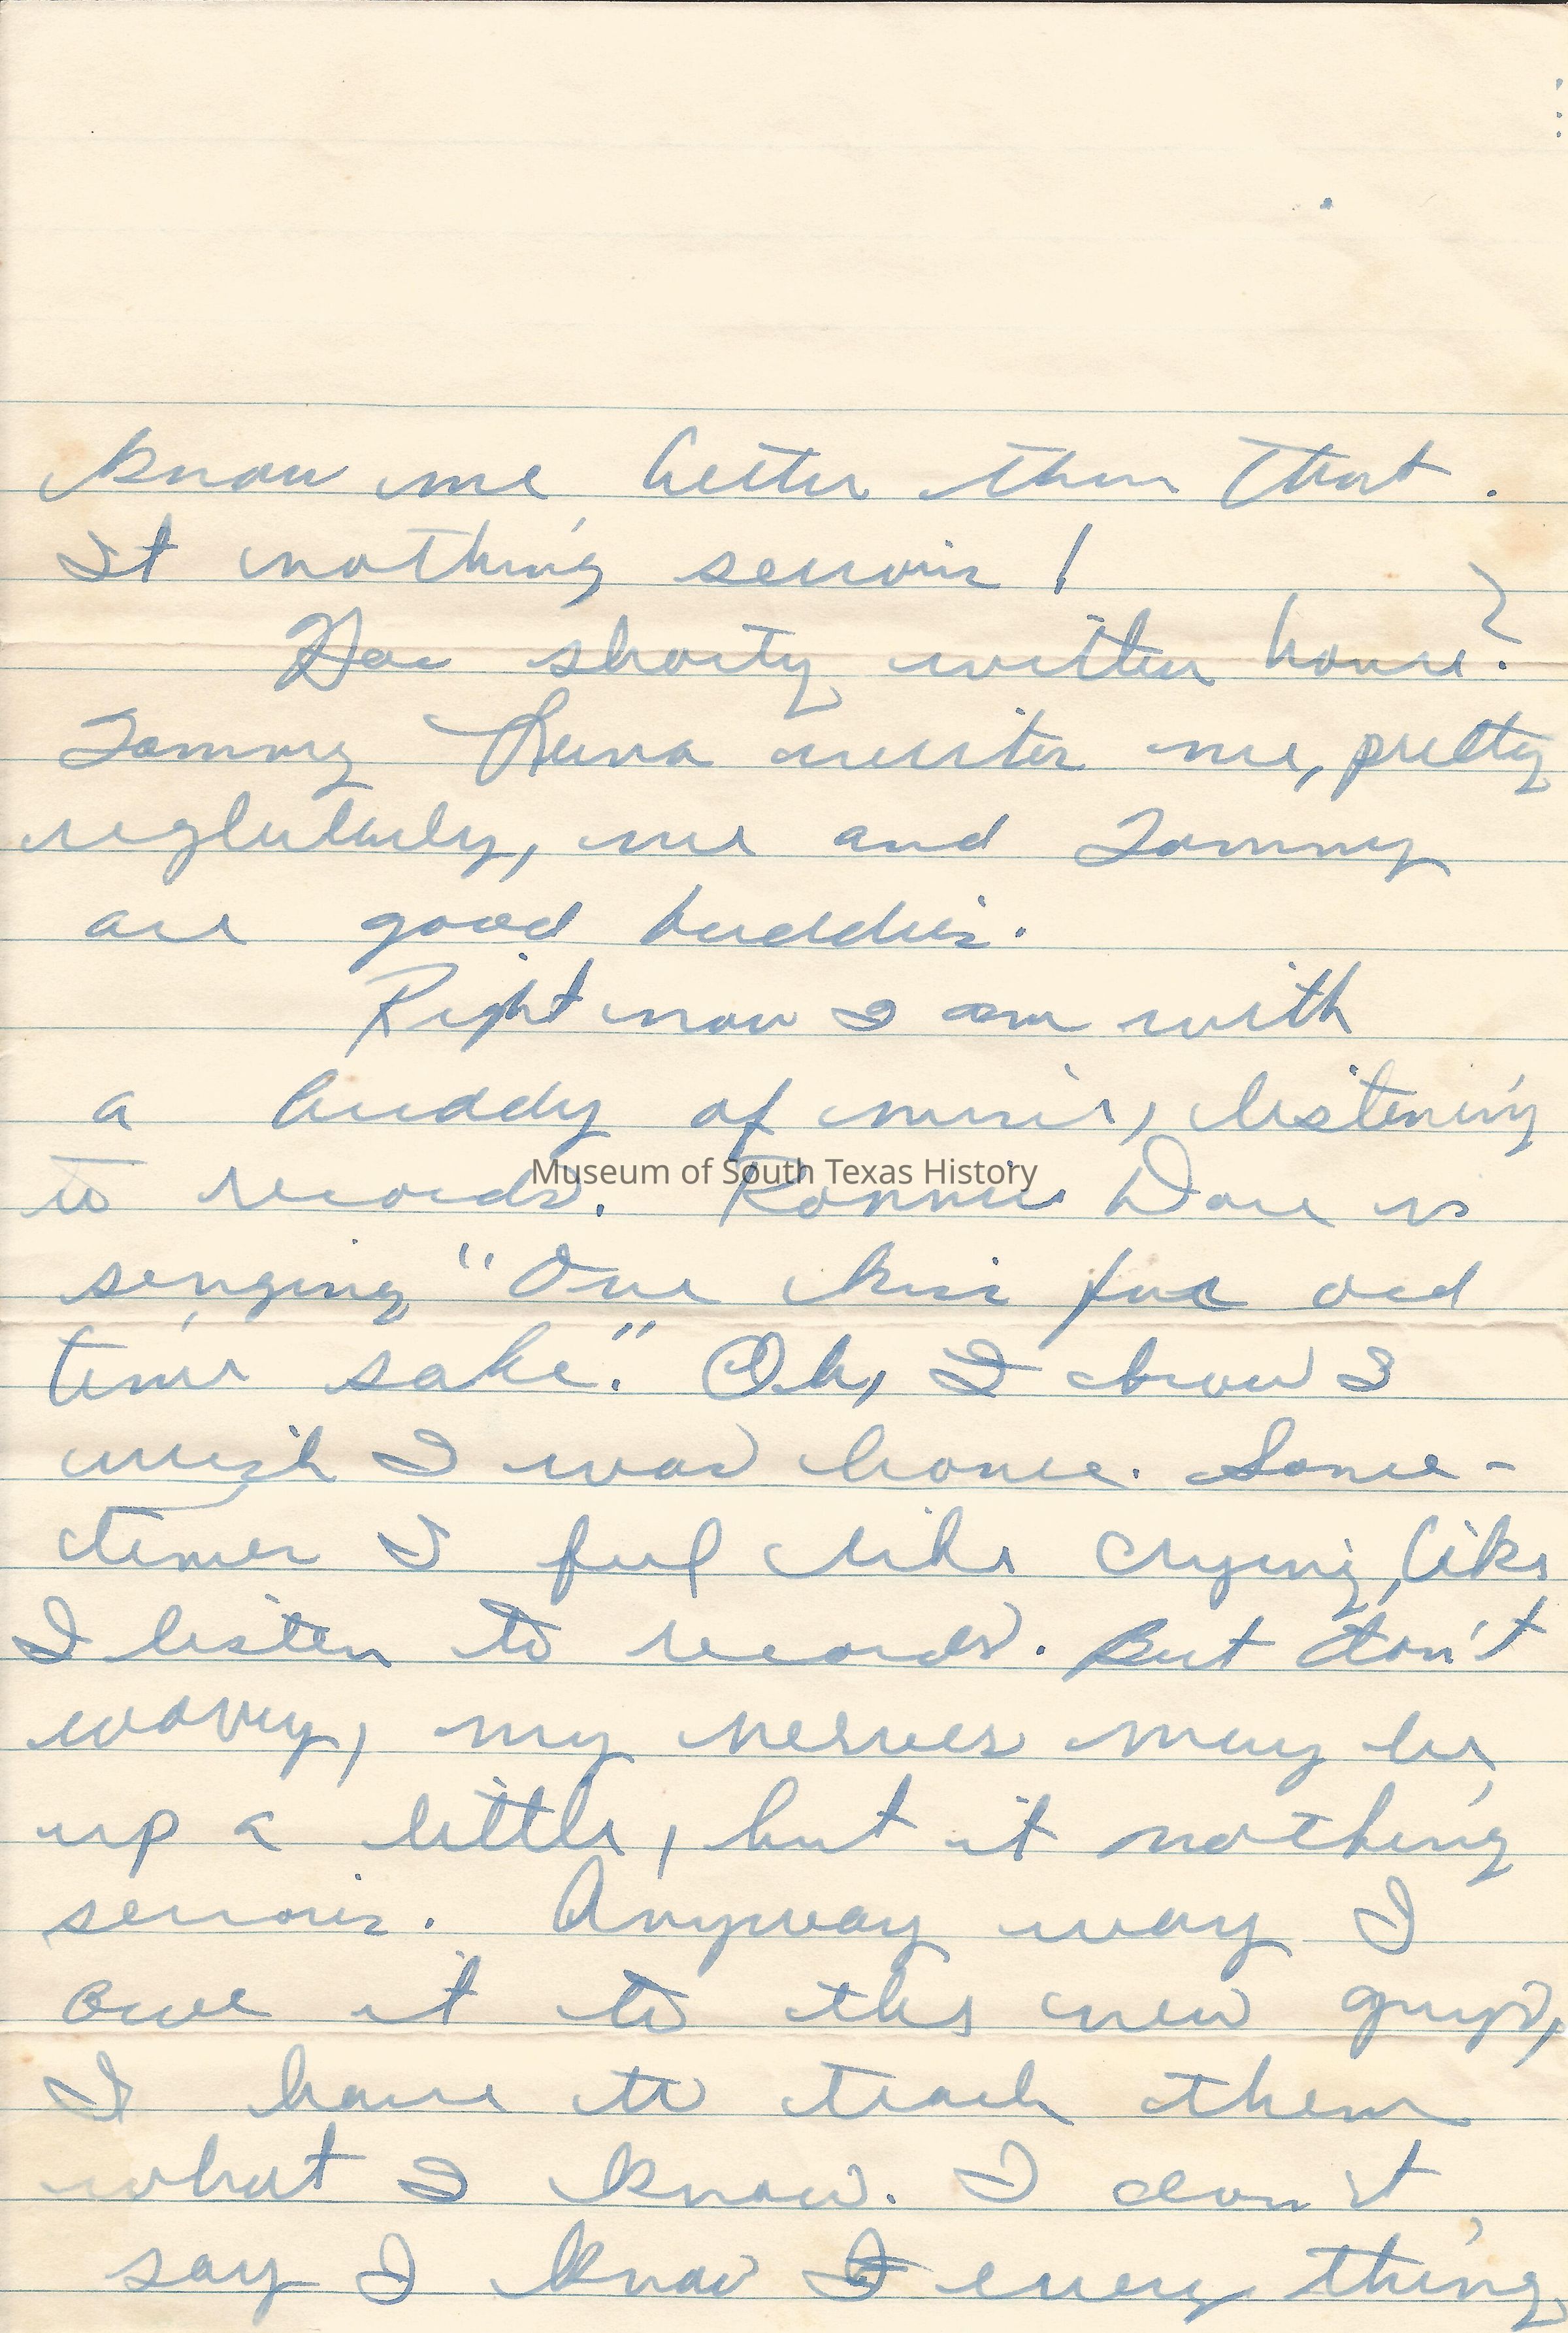 know me better then that.
It nothing serious!
Has shorty written home?
Tommy Luna writes me, pretty
reglularly, me and Tommy
are good buddies.
Right now I am with
a buddy of mines, listening
to records. Ronnie Dove is
singing "One kiss for old
time's sake." Oh, I how I
wish I was home. Some-
times I feel like crying, like
I listen to records. But don't
worry, my nerves may be
up a little, but it nothing
serious. Anyway way I
owe it to the new guys,
I have to teach them
what I know. I don't
say I know I every thing,
Museum of South Texas History